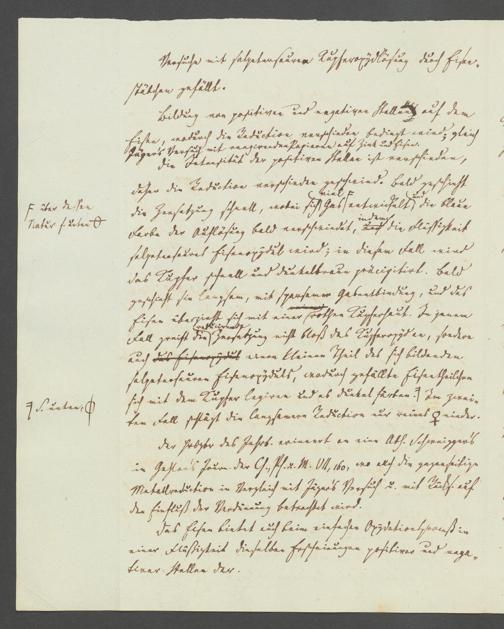 Versuche mit salpetersaurer Kupferoxydlösung durch Eisen-
stäbchen gefällt.
Bildung von positiven und negativen Stellen auf dem
Eisen, wodurch die Reduction verschieden bedingt wird; gleich
Jägers Versuch mit reagirenden Papieren auf Zink und Eisen.
die Intensität der positiven Stellen ist verschieden,
daher die Reduction verschieden geschwind. Bald geschieht
die Zersetzung schnell, wobei sich viel Gas entwickelt, die blaue
Farbe der Auflösung bald verschwindet, indem die Flüssigkeit
salpetersaures Eisenoxydul wird; in diesem Fall wird
das Kupfer schnell und dunkelbraun präcipitirt. Bald
geschieht sie langsam, mit sparsamer Gasentbindung, und das
Eisen überzieht sich mit einer rothen Kupferhaut. In jenem
Fall greift die Zersetzung nicht bloß das Kupferoxyd an, sondern
auch das Eisenoxydul einen kleinen Theil des sich bildenden
salpetersauren Eisenoxyduls, wodurch gefällte Eisentheilchen
sich mit dem Kupfer legiren und es dunkel färben. Im zwei-
ten Fall schlägt die langsamere Reduction nur reines ♀ nieder.
der Verfasser des erinnert an eine Abh. Schweiggers
in Gehlens Journ. der Ch., Ph. u. M. VII, wo auch die gegenseitige
Metallreduction in Vergleich mit Jägers Versuch u. mit auf
den Einfluß der betrachtet wird.
Das Eisen bietet auch beim einfachen Oxydationsproceß in
einer Flüssigkeit dieselben Erscheinungen positiver und nega-
tiver Stellen dar.
F über dessen
Natur s. unten
s. unten,